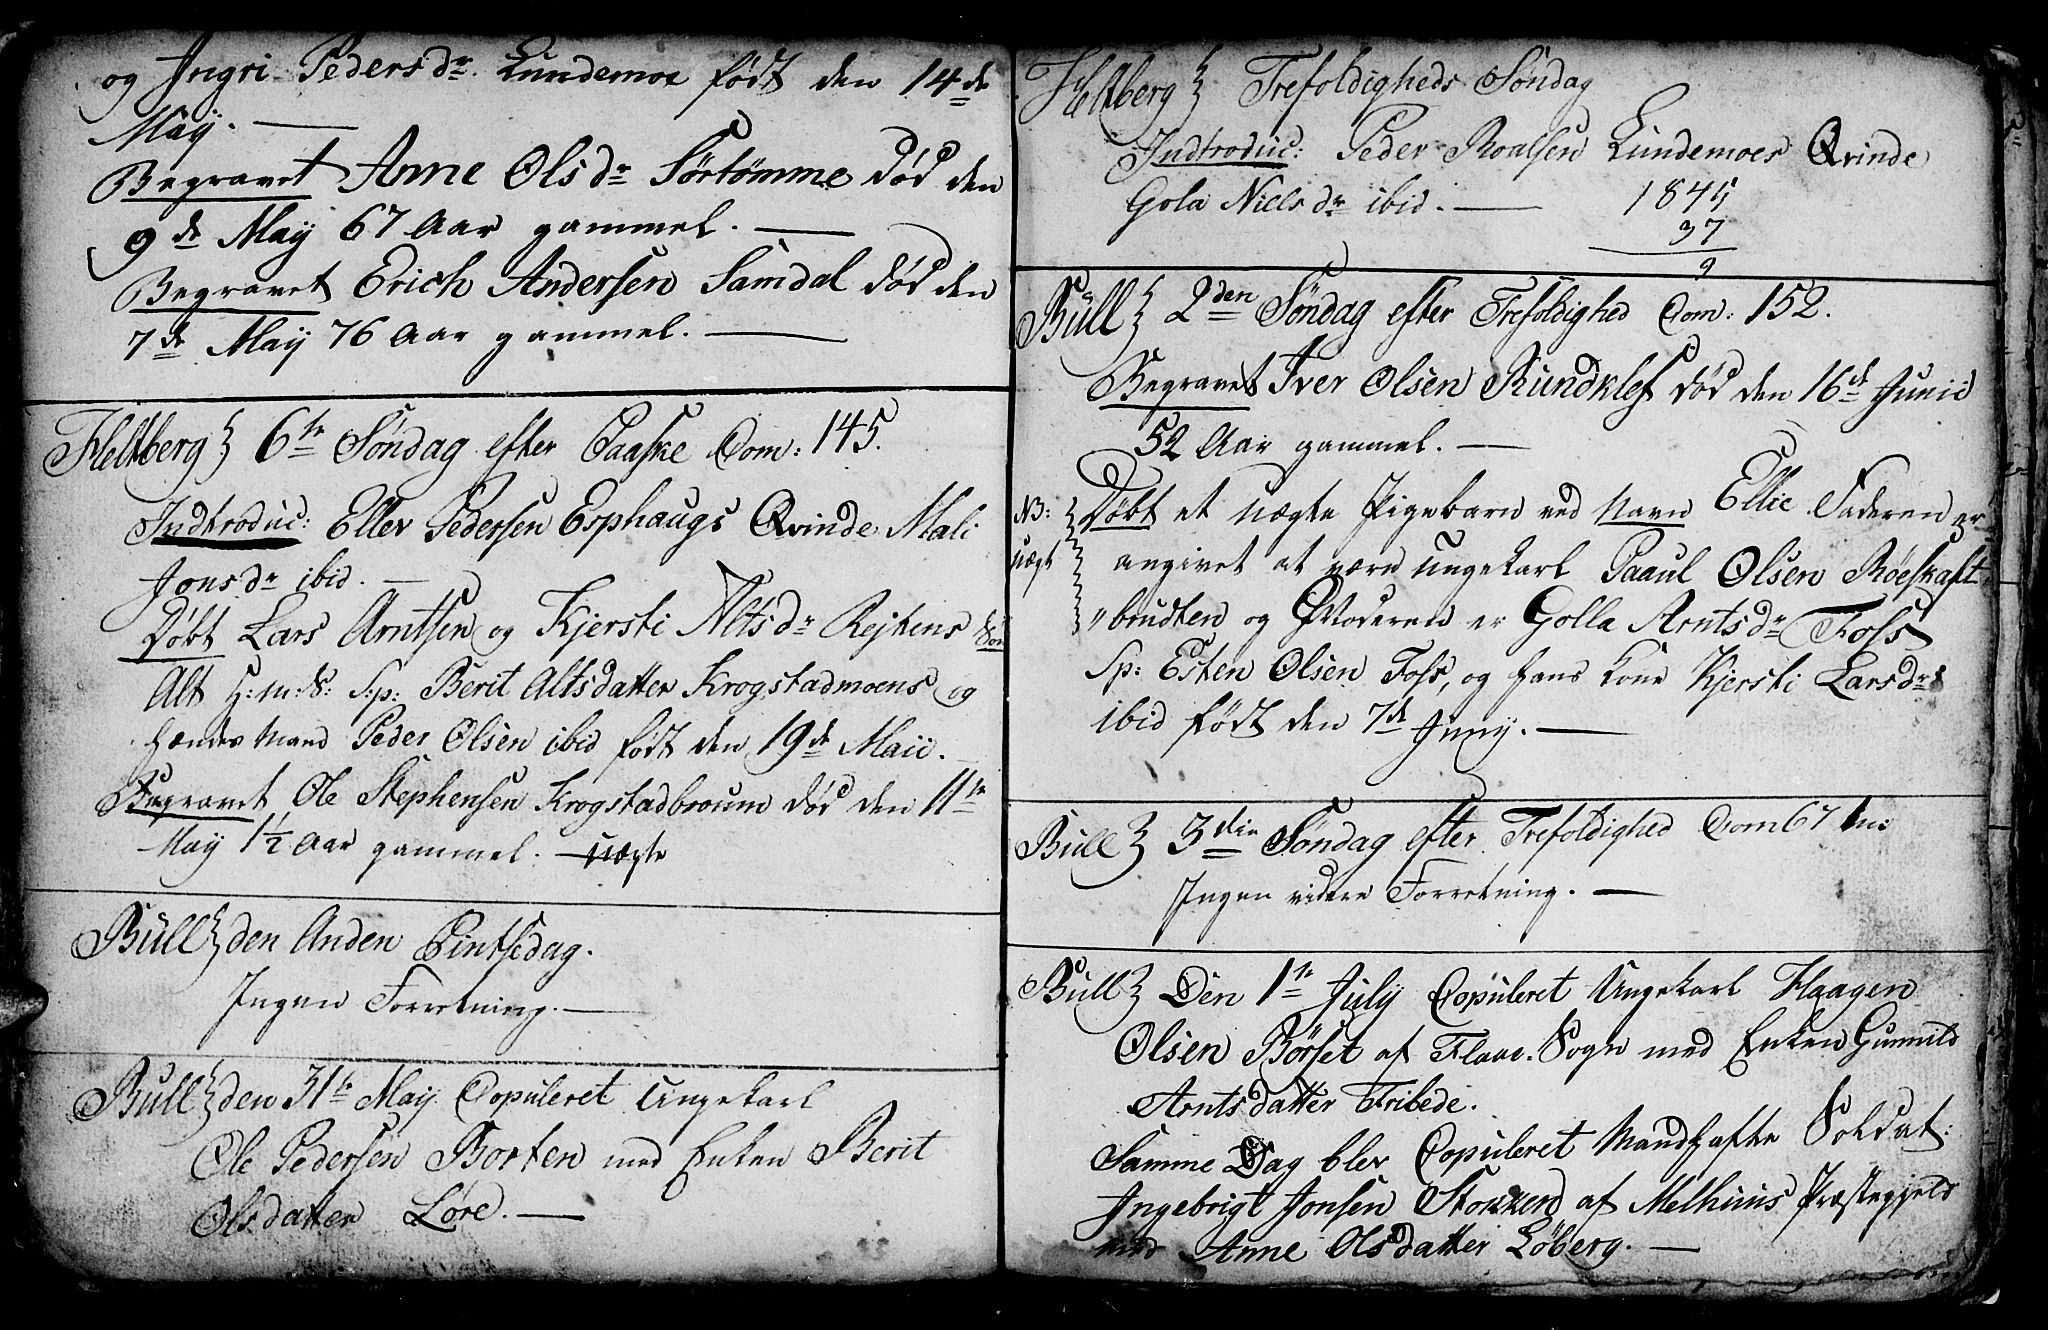 og Ingri Pedersdr. Lundemoe født den 14de
Maÿ.
Begravet Anne Olsdr Sörtömme død den
9de Maÿ 67 Aar gammel.
Begravet Erich Andersen Samdal død den
7de Maÿ 76 Aar gammel.
Heltberg 6te Søndag efter Paaske Com: 145.
Indtroduc: Eller Pedersen Esphaugs Qvinde Mali
Jonsdr ibid.
Døbt Lars Arntsen og Kjersti Altsdr Rejtens Søn
Alt H: m: N: Sp: Berit Altsdatter Krogstadmoens og
hændes Mand Peder Olsen ibid født den 19de Maii.
Begravet Ole Stephensen Krogstadbrouun død den 11te
Maÿ 1½ Aar gammel. uægte
Bull den Anden Pintsedag.
Ingen Forretning.
Bull den 31te Maÿ Copuleret Ungekarl
Ole Pedersen Borten med Enken Berit
Olsdatter Løre.
Heltberg Trefoldigheds Søndag
Indtroduc: Peder Roalsen Lundemoes Qvinde
Gola Nielsdr ibid. 1845
37
9
Bull 2den Søndag efter Trefoldighed Com: 152.
Begravet Iver Olsen Rundklef død den 16de Junii
52 Aar gammel.
NB: Døbt et uægte Pigebarn ved Navn Ellie Faderen er
uægt angivet at være ungekarl Paaul Olsen Røeskaft
"brudten og Moderen er Golla Arntsdr Foss
Sp: Esten Olsen Foss, og hans kone Kjersti Larsdr
ibid født den 7de Junÿ.
Bull 3die Søndag efter Trefoldighed Com 67 in:
Ingen videre Forretning.
Bull Den 1te Julÿ Copuleret Ungekarl Haagen
Olsen Børset af Flaae Sogn med Enken Gunnild
Arntsdatter Fribede.
Samme Dag blev Copuleret Mandhafte Soldat:
Ingebrigt Jonsen Stokkend af Melhuus Præstegjeld
med Anne Olsdatter Løberg.